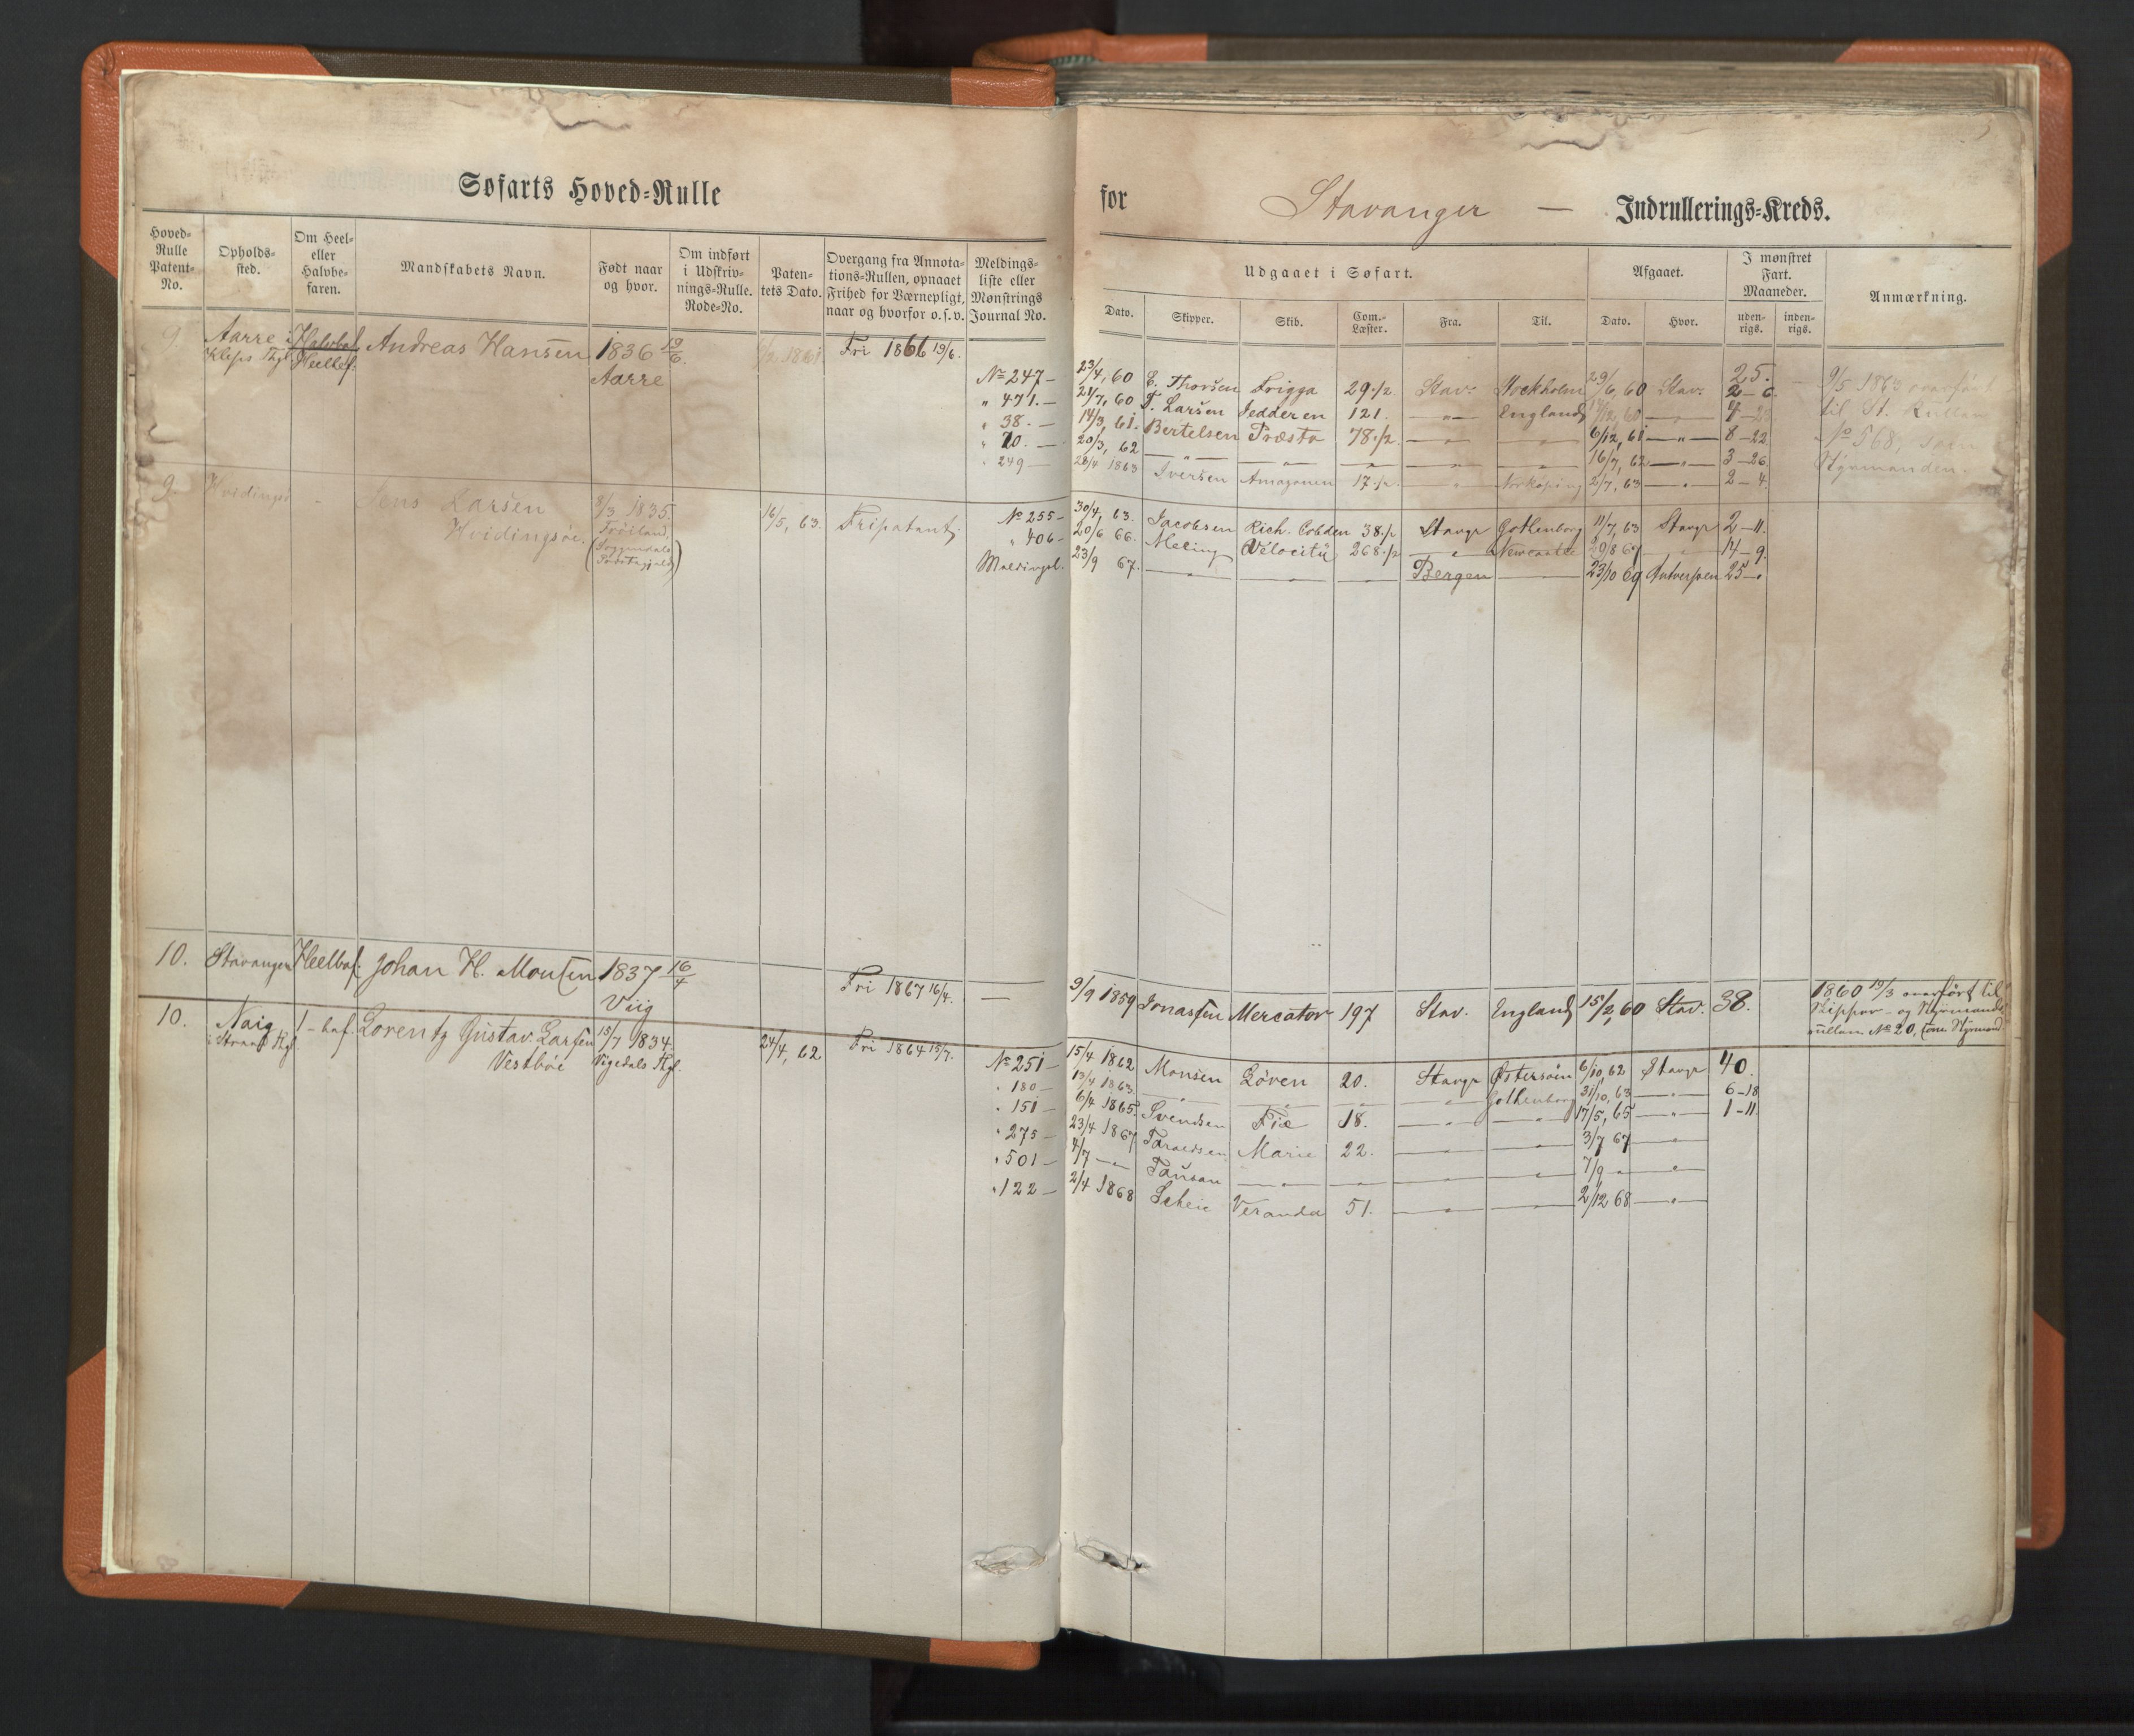 Søfarts Hoved-Rulle
for Stavanger — Indrullerings-Kreds.
Hoved-Rulle Patent-No.
Opholds-sted.
Om Heel- eller Halvbe-faren.
Mandskabets Navn.
Født naar og hvor.
Om indført i Udskriv-nings-Rulle. Rode-No.
Paten-tets Dato.
Overgang fra Annota-tions-Rullen, opnaaet Frihed for Værnepligt, naar og hvorfor o. s. v.
Meldings-liste eller Mønstrings Journal No.
Udgaaet i Søfart.
Dato. Skipper. Skib. Com.-Læster. Fra. Til.
Afgaaet.
Dato. Hvor.
I mønstret Fart. Maaneder.
uden-rigs. inden-rigs.
Anmærkning.
9. Aarre i Halvbef. Andreas Hansen 1836 19/6 1861 Fri 1866 19/6.
Kleps Thgl. Heelbef. Aarre
25.
No 247 — 23/4, 60 E. Thorsen Frigga 29 1/2 Stav. Stockholm 29/6, 60 Stav. 2 — 6
" 471. — 21/7, 60 T. Larsen Jedderen 121. — " — England — " — 4 —
" 38. — 14/3, 61. Bertelsen Præsto 78 1/2 — " — — " — 6/12, 61 — " — 8 — 22
" 70. — 20/3, 62 — " — — " — — " — — " — — " — 16/7, 62 — " — 3 — 26
" 249 — 28/4 1863 Iversen Amazonen 17 1/2 — " — Norkøping 2/7, 63 — " — 2 — 4.
9/5 1863 overført
til St. Rullen
No 568, som
Styrmanden.
9. Hvidingsø Jens Larsen 8/3 1835. 16/5, 63. Fripatent.
Hvidingsøe.
No 255 — 30/4, 63. Jacobsen Rich. Cobden 38 1/2 Stavgr Gothenborg 11/7, 63 Stavgr 2 — 11.
" 406 — 20/6 66. Meling Velocity 268 1/2 — " — Newcastle 29/8 67 " 14 — 9.
Meldingsl. 23/9 67. — " — — " — — " — Bergen — 23/10 69 Antwerpen 25 — "
10. Stavanger Heelbef. Johan H. Monsen 1837 16/4 Fri 1867 16/4. —
Viig
9/9 1859 Jonassen Mercator 197 Stav. England 15/2, 60 Stav. 38.
1860 19/3 overført til
Skipper- og Styrmands
rullen No 20, som Styrmand.
10. Naig 1 - bef. Lorentz Gustav Larsen 15/7 1834. 24/4, 62 Fri 1864 15/7.
i Strand Thgl. Vestbøe Vigedals Thgl.
No 251 — 15/4 1862 Monsen Løven 20. Stavgr Østersøen 6/10, 62 Stavgr 40.
" 180 — 13/4 1863 — " — — " — — " — — " — Gothenborg 31/10, 63 — " — 6 — 18
" 151 — 6/4 1865 Svendsen Fie 18. — " — — " — 17/5, 65 — " — 1 — 11
" 275 — 23/4 1867 Taraldsen Marie 22. — " — — " — 3/7 67 — " —
" 501 — 4/7 — " — — " — — " — — " — — " — 7/9 " — " —
" 122 — 2/4 1868 Scheie Veranda 51. — " — — " — 2/12 68 — " —